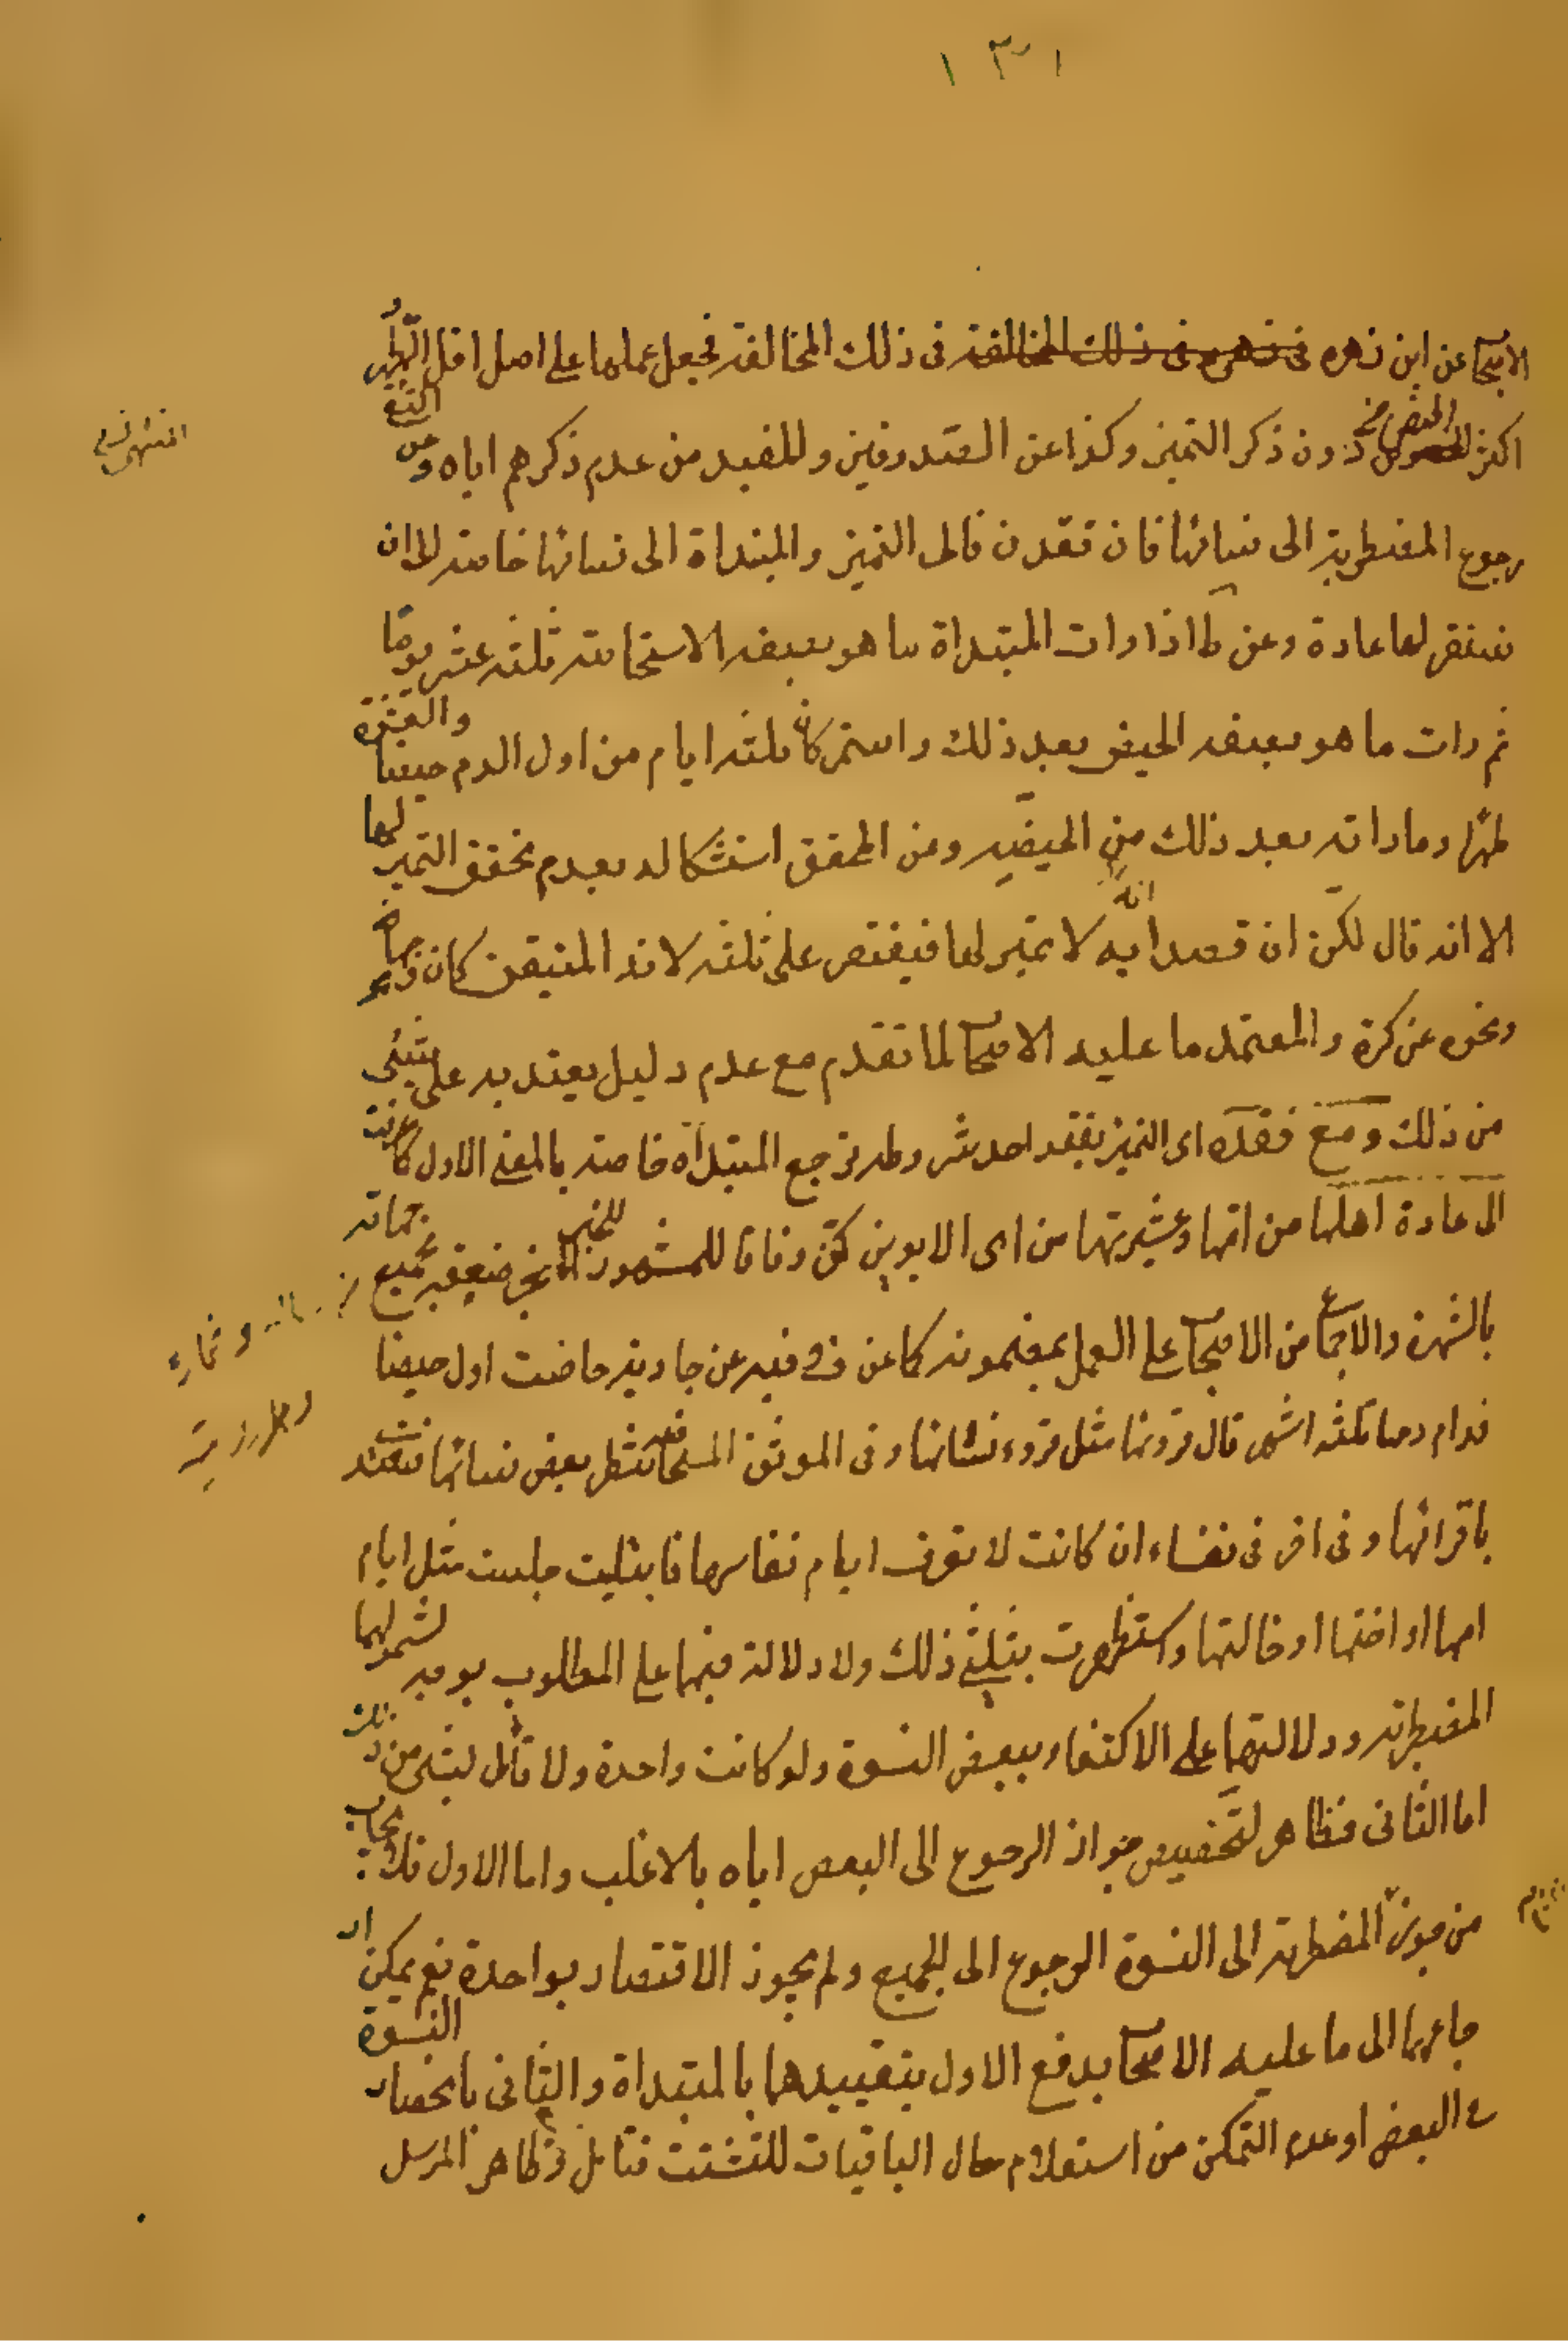 ١٣١
الاصحاب عن ابن زهره في ذلك المخالفة في ذلك المخالفة فجعل عملها على اصل اقل الطهر
اكثر الحيض دون ذكر التميز وكذا عن الصدوقين وللمفيد من عدم ذكرهم اياه وعن التقي
رجوع المضطربة الى نسائها فان فقدن فالى التميز والمبتداة الى نسائها خاصة الى ان
تستقر لها عادة وعن ط اذا رات المبتداة ما هو بصفة الاستحاضة ثلثة عشر يوما
ثم رات ما هو بصفة الحيض بعد ذلك واستمر كان ثلثة ايام من اول الدم حيضا والعشرة
طهرا وما راته بعد ذلك من الحيضة وعن المحقق استشكاله بعدم تحقق التميز لها
الا انه قال لكن ان قصد انه لا تميز لها فيقتصر على ثلثة لانه المتيقن كان
ونحوه عن كرة والمعتمد ما عليه الاصحاب لما تقدم مع عدم دليل يعتد به على شيء
من ذلك ومع فقده اي التميز بفقد احد شروطه ترجع المبتداة خاصة بالمعنى الاول كما عرفت
الى عادة اهلها من امها وعشيرتها من اي الابوين كن وفاقا للمشهور للخبر
بالشهرة والاجماع من الاصحاب على العمل بمضمونه كما عن ف فيه عن جارية حاضت اول حيضها
فدام دمها ثلثة اشهر قال قروئها مثل قروء نسائها وفي الموثق المستحاضة تنظر بعض نسائها فتقتد
باقرائها وفي اخر في نفساء ان كانت لا تعرف ايام نفاسها فابتليت جلست مثل ايام
امها او اختها او خالتها واستظهرت بثلثي ذلك ولا دلالة فيهما على المطلوب بوجه لشمولهما
المضطربة ودلالتهما على الاكتفاء ببعض النسوة ولو كانت واحدة ولا قائل بشئ من ذلك
اما الثاني فظاهر لتخصيص جواز الرجوع الى البعض اياه بالاغلب واما الاول
من جوز المضطربة الى النسوة الرجوع الى الجميع ولم يجوز الاقتصار بواحدة نعم يمكن
جاعهما الى ما عليه الاصحاب بدفع الاول بتقييدهما بالمبتداة والثاني بانحصار النسوة
البعض او عدم التمكن من استعلام حال الباقيات للتشتت فتامل وظاهر المرسل